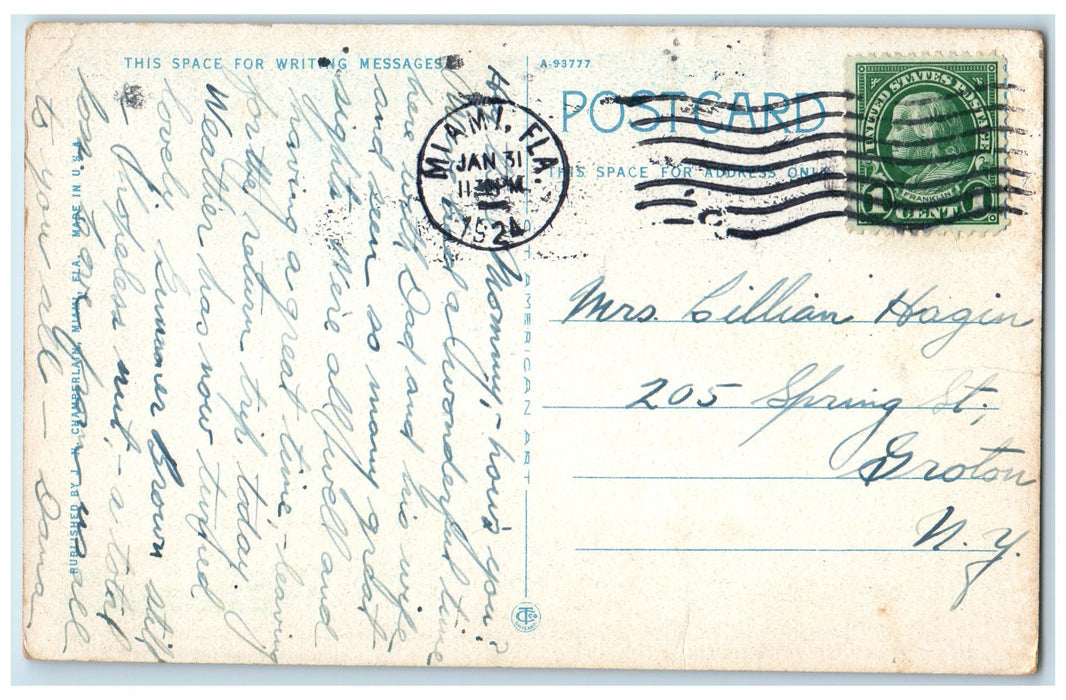 THIS SPACE FOR WRITING MESSAGES
A-93777
POST CARD
THIS SPACE FOR ADDRESS ONLY
MIAMI, FLA.
JAN 31
11 PM
1924
UNITED STATES POSTAGE
FRANKLIN
1 CENT 1
Mommy, - how's you?
had a wonderful time
here with Dad and his wife
and seen so many great
sights. We're all well and
having a great time, - leaving
for the return trip today.
Weather has now turned
lovely
Sumner Brown still
hopeless nut, - a total
loss. Love from us all
to you all -
Mrs. Lillian Hagin
205 Spring St.,
Groton
N.Y.
AMERICAN ART
PUBLISHED BY J. N. CHAMBERLAIN, MIAMI, FLA. MADE IN U.S.A.